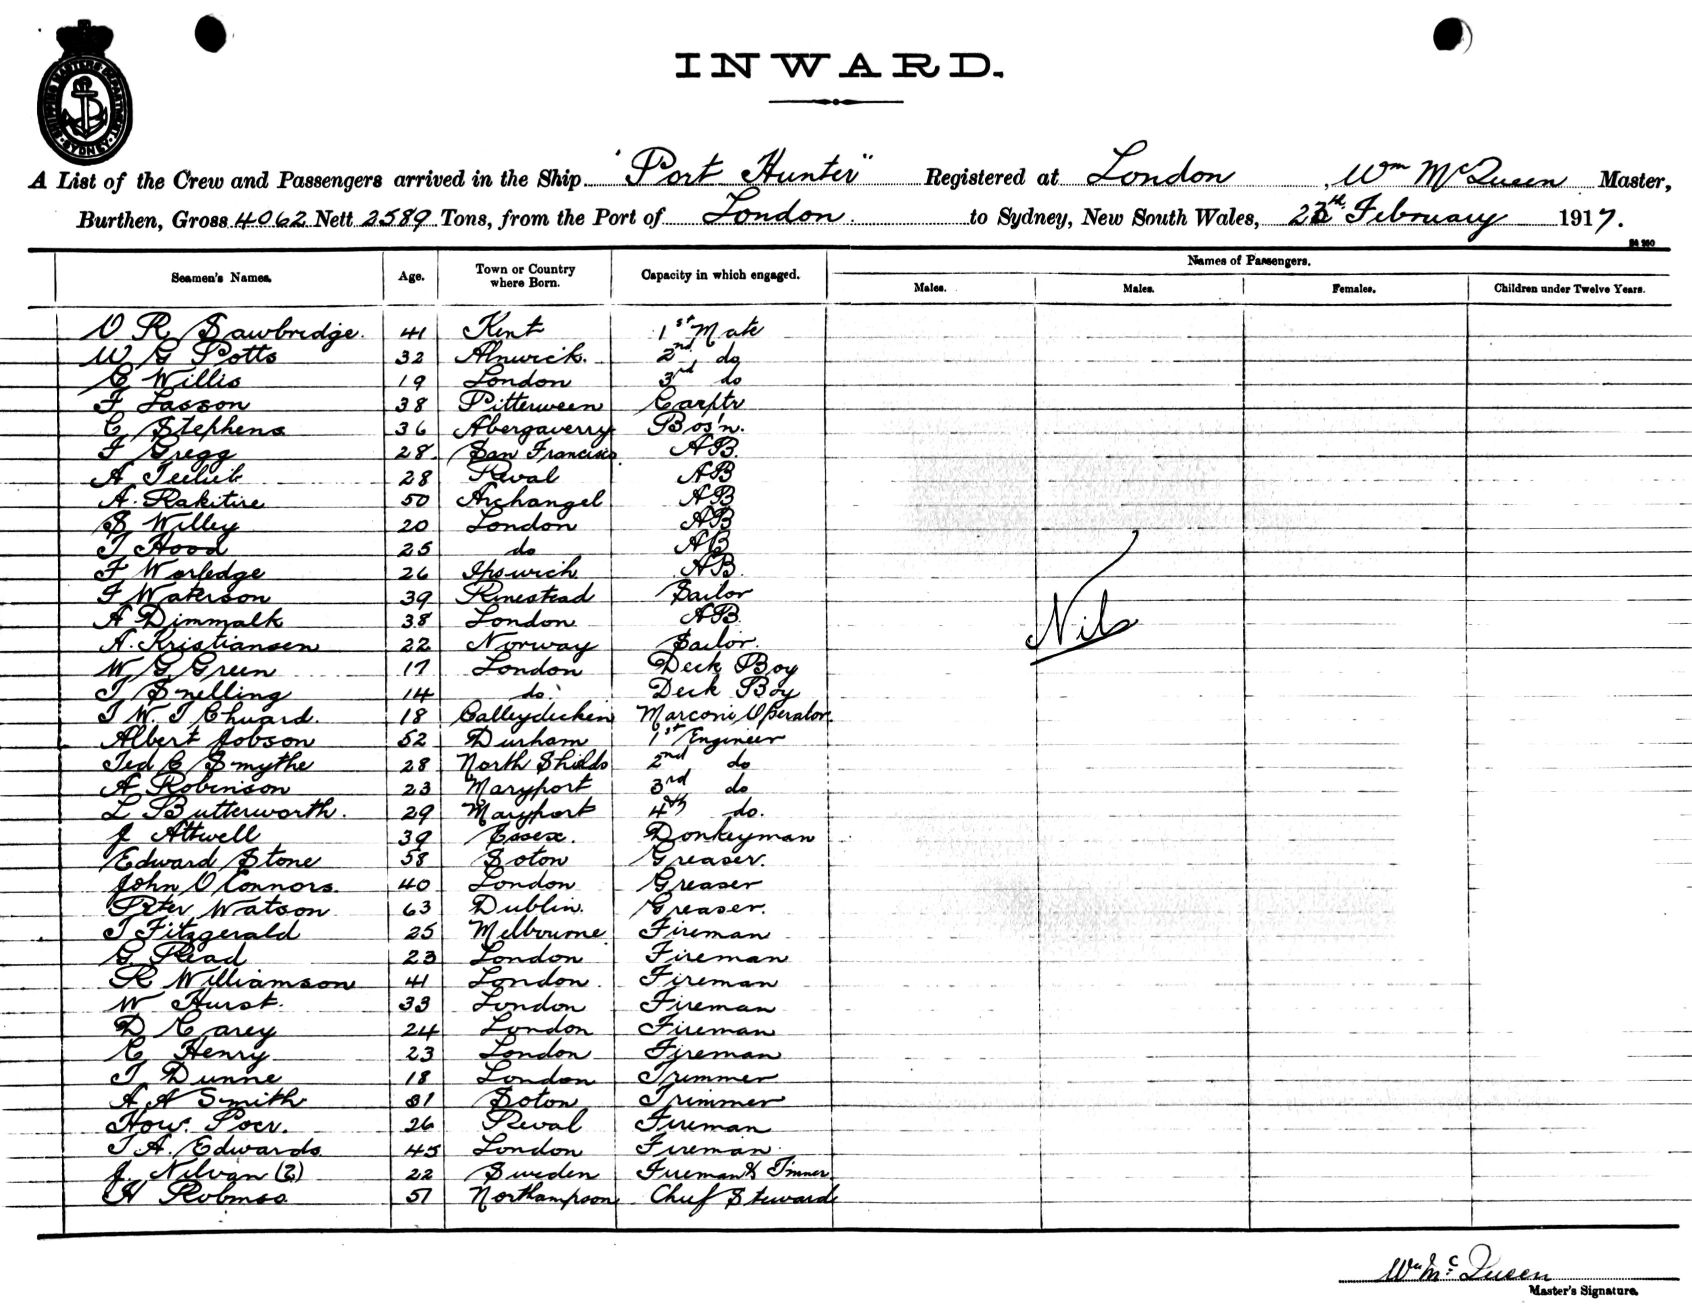 SHIPPING MASTERS DEPARTMENT SYDNEY
INWARD.
A List of the Crew and Passengers arrived in the Ship "Port Hunter" Registered at London, Wm McQueen Master,
Burthen, Gross 4062 Nett 2589 Tons, from the Port of London. to Sydney, New South Wales, February 1917.
Names of Passengers.
Seamen's Names. Age. Town or Country where Born. Capacity in which engaged. Males. Males. Females. Children under Twelve Years.
O R Sawbridge. 41 Kent 1st Mate
W G Potts 32 Alnwick. 2nd do
C Willis 19 London 3rd do
F Lasson 38 Pitterween Carptr
C Stephens 36 Abergaverry Bos'n.
F Gregg 28. San Francisco AB.
A 28 Reval AB
A. Rakitire 50 Archangel AB
S Willey 20 London AB
T Hood 25 do AB
F Worledge 26 Ipswich AB.
F Waterson 39 Rinestead Sailor
A Dimmalk 38 London AB.
A. Kristiansen 22 Norway Sailor.
Nil
W G Green 17 London Deck Boy
T Snelling 14 do. Deck Boy
T W. T Chuard. 18 Marconi Operator
Albert Jobson 52 Durham 1st Engineer
Ted C Smythe 28 North Shields 2nd do
A Robinson 23 Maryport 3rd do
L Butterworth. 29 Maryport 4th do.
J Attwell 39 Essex. Donkeyman
Edward Stone 58 Soton Greaser.
John O Connors. 40 London Greaser
Peter Watson 63 Dublin. Greaser.
T Fitzgerald 25 Melbourne Fireman
G. Read 23 London Fireman
R Williamson 41 London. Fireman
W Hurst. 33 London Fireman
D Carey 24 London Fireman
C Henry 23 London Fireman
T Dunne 18 London Trimmer
A A Smith 31 Soton Trimmer
How. Poer. 26 Reval Fireman
T A. Edwards 45 London Fireman
J Nilvan (2) 22 Sweden Fireman & Timner
H Robmss 57 Northampson Chief Steward
Wm McQueen
Master's Signature.